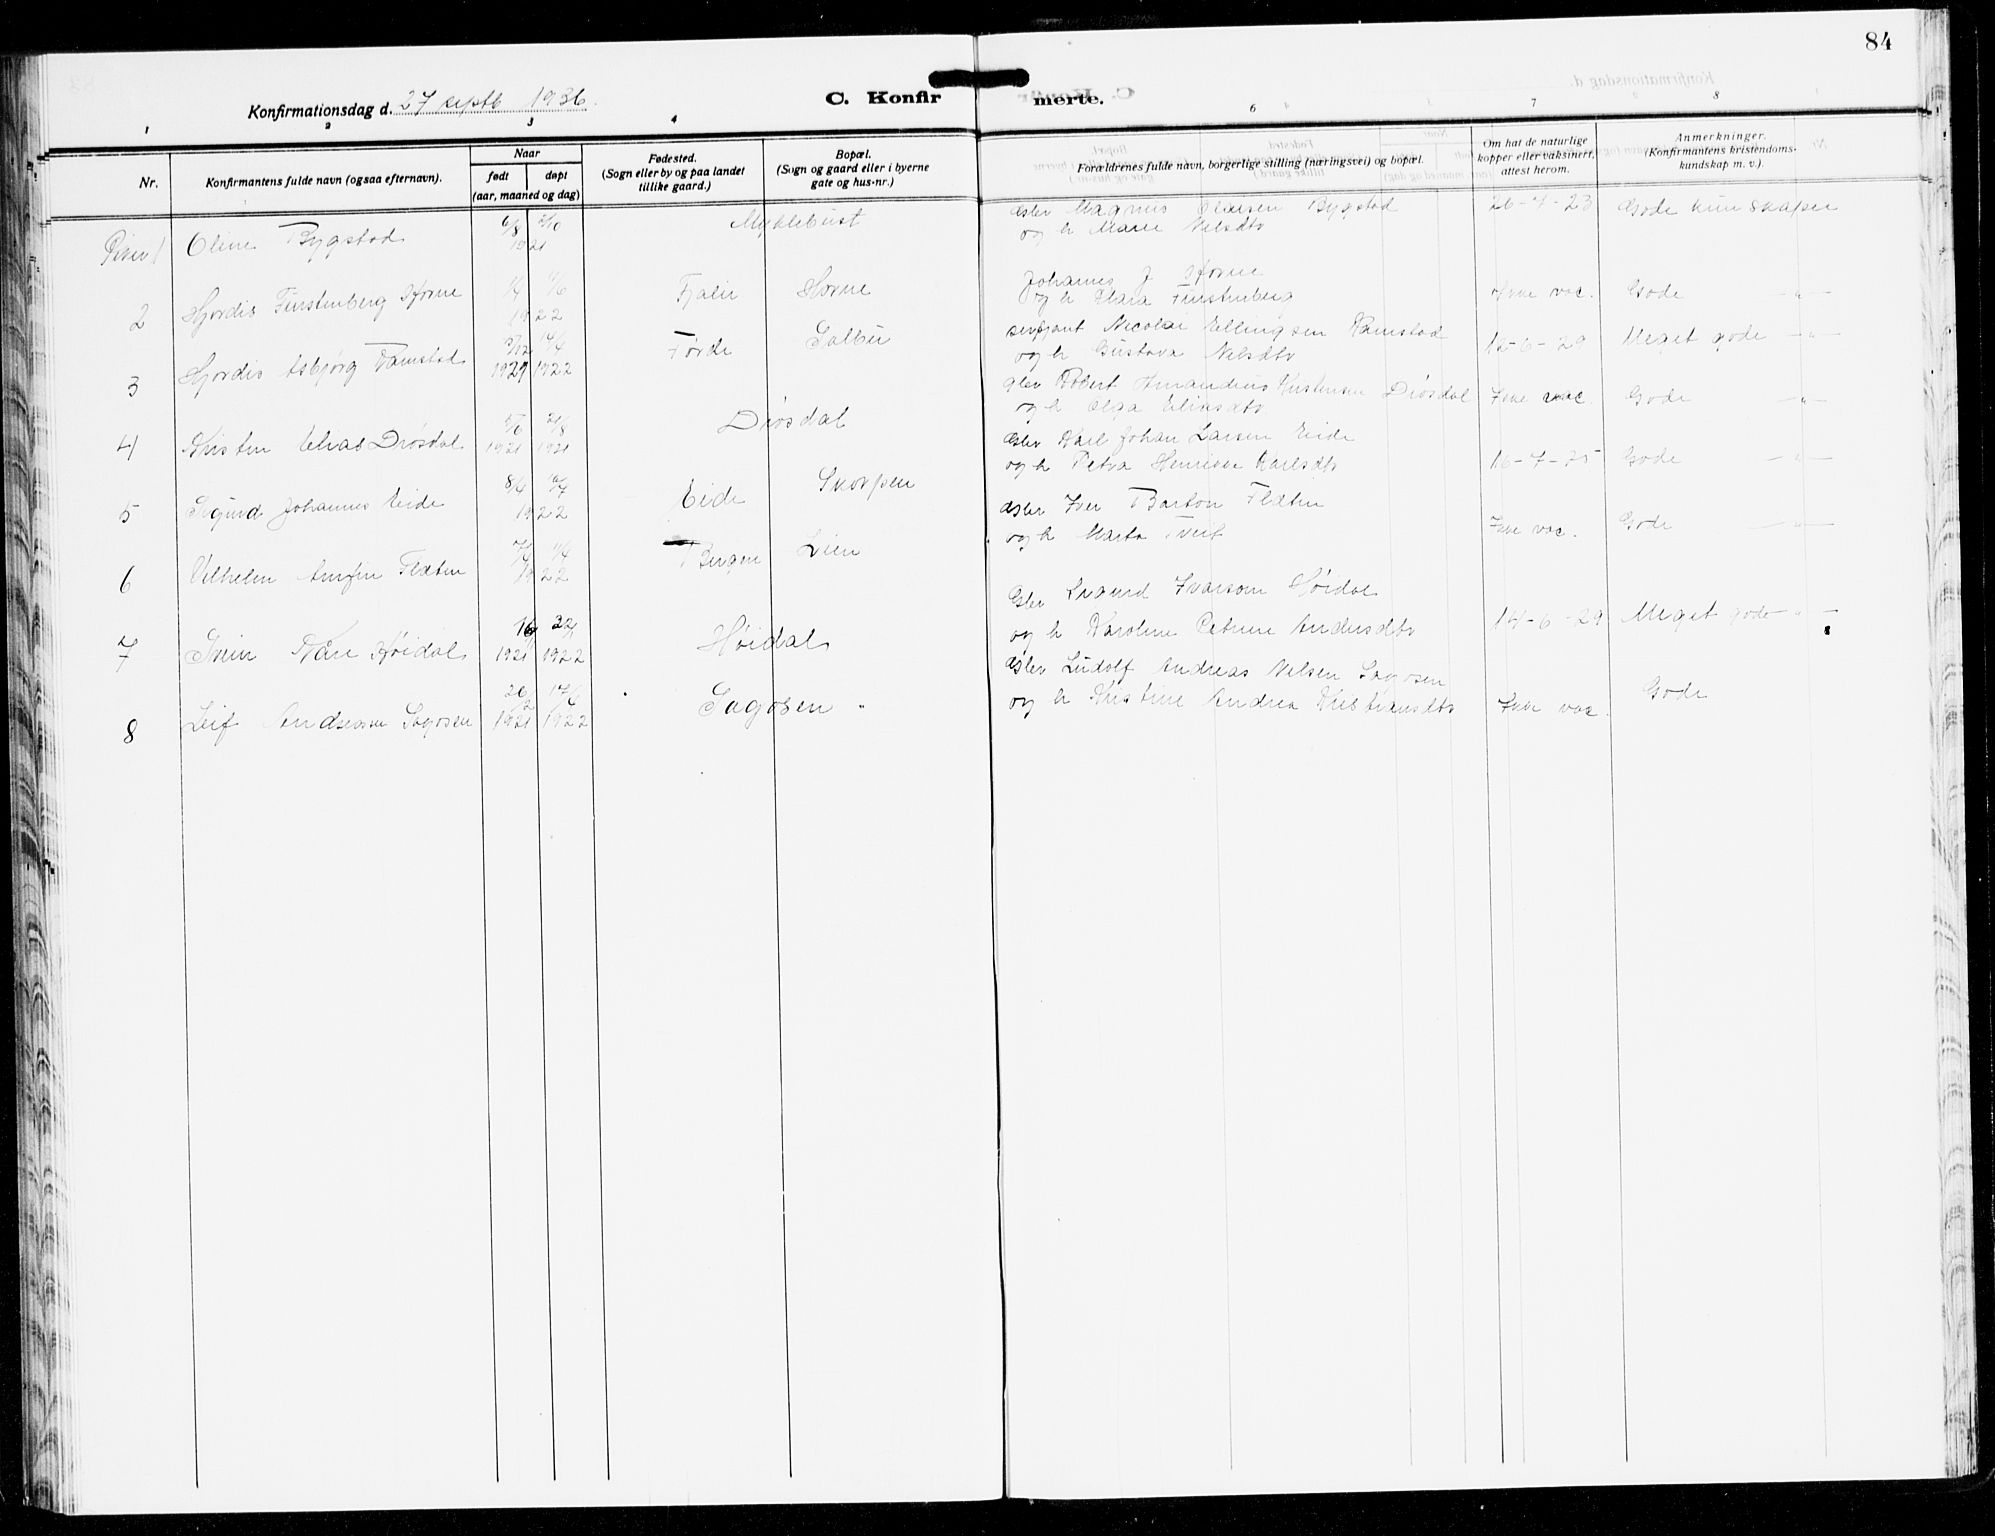 84
Konfirmationsdag d. 27 septb 1936.
C. Konfirmerte.
1 2 3 4 6 7 8
Nr.
Konfirmantens fulde navn (ogsaa efternavn).
Naar
født
døpt
(aar, maaned og dag)
Fødested.
(Sogn eller by og paa landet
tillike gaard.)
Bopæl.
(Sogn og gaard eller i byerne
gate og hus-nr.)
Forældrenes fulde navn, borgerlige stilling (næringsvei) og bopæl.
Om hat de naturlige
kopper eller vaksinert,
attest herom.
Anmerkninger.
(Konfirmantens kristendoms-
kundskap m. v.).
1 Oline Bygstad 6/8 1921 Myklebust
Magnus Olaisen Bygstad
og h Marie Nilsdtr
26-7-23 Gode kunskaper
2 Hjordis Fürstenberg Horne 1922 Fjaler Horne
Johannes J Horne
og h Klara Fürstenberg
Ikke vac. Gode — " —
3 Hjordis Asbjørg Ramstad 1921 14/4 1922 Førde Solbu
sersjant Nicolai Ellingsen Ramstad
og h Gustava Nilsdtr
12-6-29 Meget gode — " —
4 Kristen Elias Drøsdal 1921 1921 Drøsdal
Robert Amandus Kristensen Drøsdal
og h Olga Eliasdtr
Ikke vac. Gode — " —
5 Sigurd Johannes Eide 8/4 1922 Eide Skorpen
Karl Johan Larsen Eide
og h Petra Henrikke Karlsdtr
16-7-25 Gode — " —
6 Vilhelm Arnfin Flæten 1922 Bergen Lien
Iver Barton Flæten
og h Marta Tveit
Ikke vac. Gode — " —
7 Svein Kåre Høidal 1921 22/1 1922 Høidal
Sigurd Ivarson Høidal
og h Karoline Petrine Andersdtr
14-6-29 Meget gode — " —
8 Leif Andreas Sagosen 26/12 1921 17/4 1922 Sagosen "
Ludolf Andreas Nilsen Sagosen
og h Kristine Andrea Kristiansdtr
Ikke vac. Gode